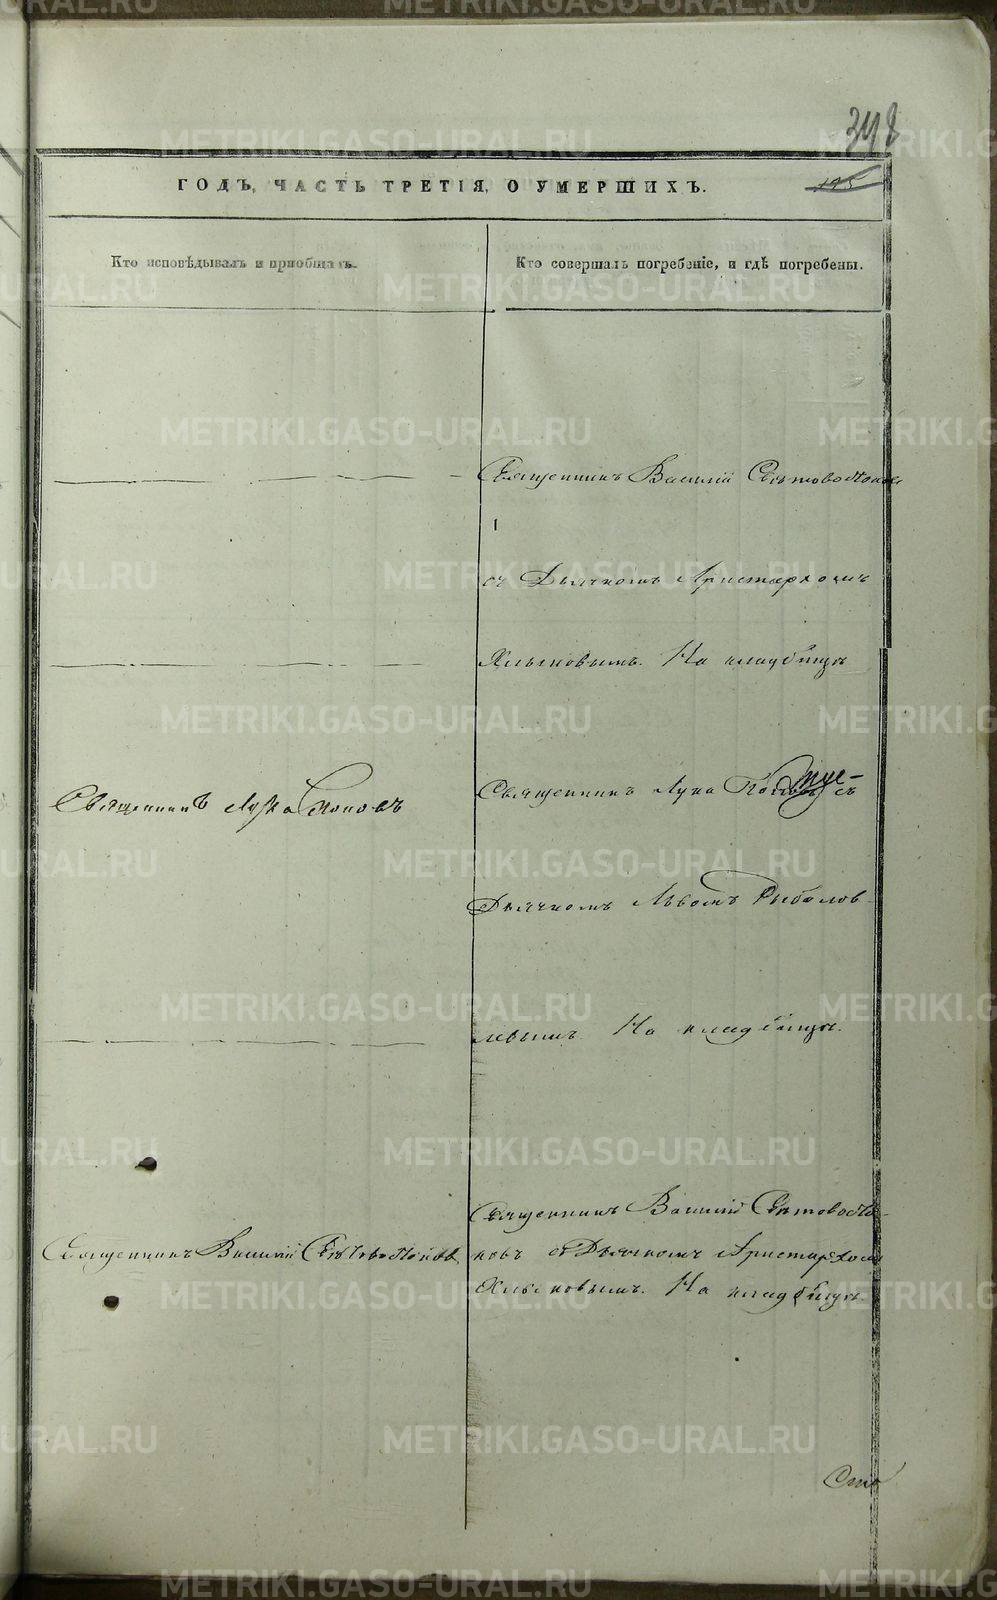 348
ГОДЪ, ЧАСТЬ ТРЕТІЯ, О УМЕРШИХЪ.
195
Кто исповѣдывалъ и приобщалъ.
Кто совершалъ погребеніе, и гдѣ погребены.
Священникъ Василій
съ Дьячкомъ Аристархомъ
Хлыновымъ. На кладбищѣ
Священникъ Лука Поповъ
Священникъ Лука Поповъ съ
Дьячкомъ Львомъ Рыболов-
левымъ На кладбищѣ.
Священникъ Василій
Священникъ Василій
ковъ съ Дьячкомъ Аристархомъ
Хлыновымъ. На кладбищѣ
METRIKI.GASO-URAL.RU